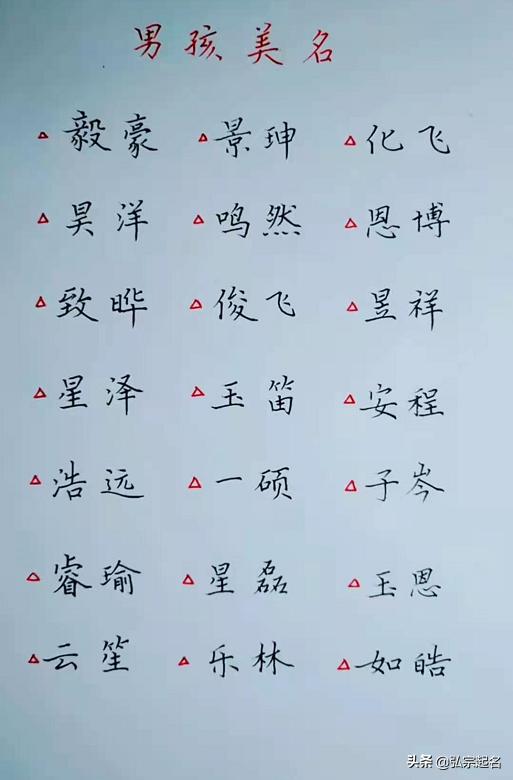 男孩美名
△毅豪 △景珅 △化飞
△昊洋 △鸣然 △恩博
△致晔 △俊飞 △昱祥
△星泽 △玉笛 △安程
△浩远 △一硕 △子岑
△睿瑜 △星磊 △玉恩
△云笙 △乐林 △如皓
头条 @弘宗起名